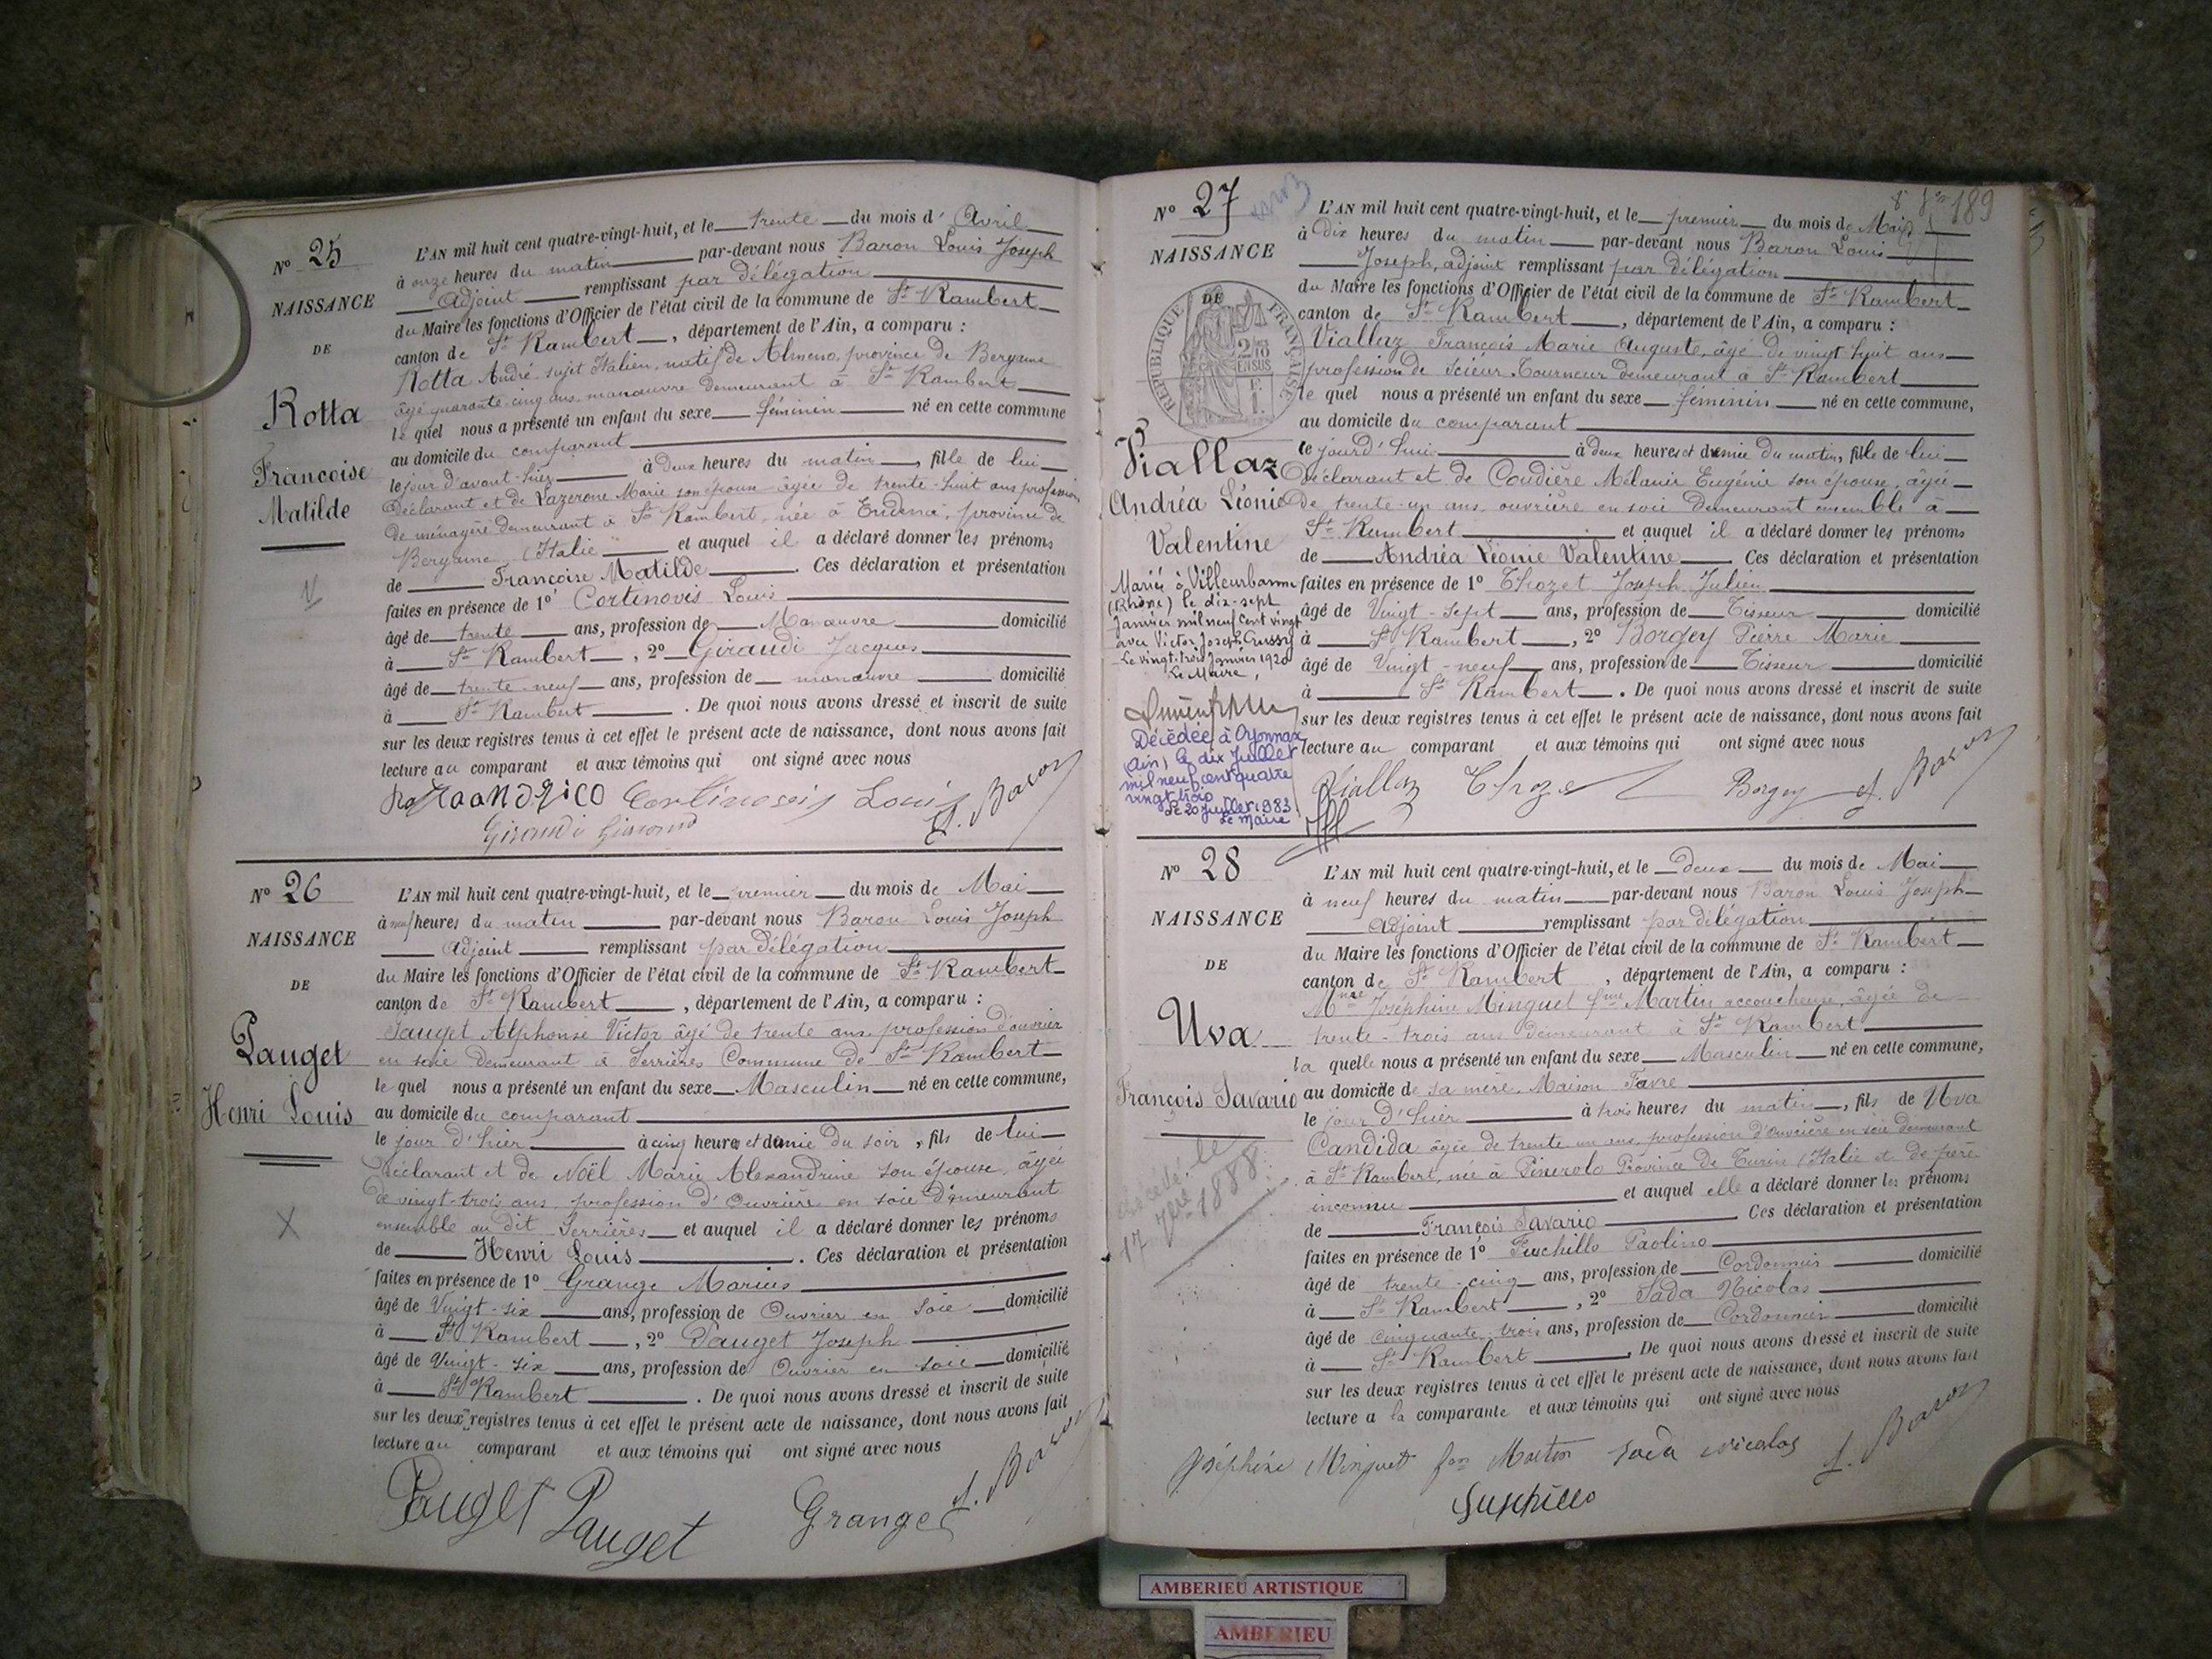 Nº 25
NAISSANCE
DE
Rotta
Francoise
Matilde
L'AN mil huit cent quatre-vingt-huit, et le trente du mois d' Avril
à onze heures du matin par-devant nous Baron Louis Joseph
Adjoint remplissant par délégation
du Maire les fonctions d'Officier de l'état civil de la commune de St Rambert
canton de St Rambert, département de l'Ain, a comparu :
Rotta André sujet Italien, natif de Almeno, province de Bergame
âgé quarante-cinq ans manœuvre demeurant à St Rambert
le quel nous a présenté un enfant du sexe féminin né en cette commune
au domicile du comparant
le jour d'avant-hier à deux heures du matin, fille de lui
Déclarant et de Lazerone Marie son épouse âgée de trente-huit ans profession
de ménagère demeurant à St Rambert, née à Endena, province de
Bergame (Italie et auquel il a déclaré donner les prénoms
de Françoise Matilde. Ces déclaration et présentation
faites en présence de 1º Cortinovis Louis
âgé de trente ans, profession de Manœuvre domicilié
à St Rambert, 2º Giraudi Jacques
âgé de trente-neuf ans, profession de manœuvre domicilié
à St Rambert. De quoi nous avons dressé et inscrit de suite
sur les deux registres tenus à cet effet le présent acte de naissance, dont nous avons fait
lecture au comparant et aux témoins qui ont signé avec nous
Louis
Baron
Nº 26
NAISSANCE
DE
Pauget
Henri Louis
X
L'AN mil huit cent quatre-vingt-huit, et le premier du mois de Mai
à neuf heures du matin par-devant nous Baron Louis Joseph
Adjoint remplissant par délégation
du Maire les fonctions d'Officier de l'état civil de la commune de St Rambert
canton de St Rambert, département de l'Ain, a comparu :
Pauget Alphonse Victor âgé de trente ans profession d'ouvrier
en soie demeurant à Serrières Commune de St Rambert
le quel nous a présenté un enfant du sexe Masculin né en cette commune,
au domicile du comparant
le jour d'hier à cinq heures et demie du soir, fils de lui
Déclarant et de Noël Marie Alexandrine son épouse, âgée
de vingt-trois ans profession d'Ouvrière en soie demeurant
ensemble au dit Serrières et auquel il a déclaré donner les prénoms
de Henri Louis. Ces déclaration et présentation
faites en présence de 1º Grange Marius
âgé de Vingt-six ans, profession de Ouvrier en Soie domicilié
à St Rambert, 2º Pauget Joseph
âgé de Vingt-six ans, profession de Ouvrier en soie domicilié
à St Rambert. De quoi nous avons dressé et inscrit de suite
sur les deux registres tenus à cet effet le présent acte de naissance, dont nous avons fait
lecture au comparant et aux témoins qui ont signé avec nous
Pauget Pauget Grange Baron
189
Nº 27
NAISSANCE
DE
RÉPUBLIQUE FRANÇAISE
Viallaz
Andréa Léonie
Valentine
Mariée à Villeurbanne
(Rhône) le dix-sept
Janvier mil neuf cent vingt
avec Victor Joseph Cussy
Le vingt-trois Janvier 1920
Le Maire,
Décédée à Oyonnax
(Ain) le dix Juillet
mil neuf cent quatre
vingt trois
Le 20 juillet 1983
Le Maire
L'AN mil huit cent quatre-vingt-huit, et le premier du mois de Mai
à dix heures du matin par-devant nous Baron Louis
Joseph, adjoint remplissant par délégation
du Maire les fonctions d'Officier de l'état civil de la commune de St Rambert
canton de St Rambert, département de l'Ain, a comparu :
Viallaz François Marie Auguste, âgé de vingt huit ans
profession de Scieur, Tourneur demeurant à St Rambert
le quel nous a présenté un enfant du sexe féminin né en cette commune,
au domicile du comparant
le jourd'hui à deux heures et demie du matin, fille de lui
Déclarant et de Coudière Mélanie Eugénie son épouse, âgée
de trente-un ans, ouvrière en soie demeurant ensemble à
St Rambert et auquel il a déclaré donner les prénoms
de Andréa Léonie Valentine Ces déclaration et présentation
faites en présence de 1º Thozet Joseph Julien
âgé de Vingt-sept ans, profession de Tisseur domicilié
à St Rambert, 2º Borgey Pierre Marie
âgé de Vingt-neuf ans, profession de Tisseur domicilié
à St Rambert. De quoi nous avons dressé et inscrit de suite
sur les deux registres tenus à cet effet le présent acte de naissance, dont nous avons fait
lecture au comparant et aux témoins qui ont signé avec nous
Viallaz Thozet Borgey Baron
Nº 28
NAISSANCE
DE
Uva
François Savario
décédé le
17 7bre 1888
L'AN mil huit cent quatre-vingt-huit, et le deux du mois de Mai
à neuf heures du matin par-devant nous Baron Louis Joseph
Adjoint remplissant par délégation
du Maire les fonctions d'Officier de l'état civil de la commune de St Rambert
canton de St Rambert, département de l'Ain, a comparu :
Mme Joséphine Minguet fme Martin accoucheuse, âgée de
trente-trois ans demeurant à St Rambert
la quelle nous a présenté un enfant du sexe Masculin né en cette commune,
au domicile de sa mère, Maison Favre
le jour d'hier à trois heures du matin, fils de Uva
Candida âgée de trente un ans, profession d'ouvrière en soie demeurant
à St Rambert, née à Pinerolo Province de Turin (Italie et de père
inconnu et auquel elle a déclaré donner les prénoms
de François Savario Ces déclaration et présentation
faites en présence de 1º Fuschillo Paolino
âgé de trente-cinq ans, profession de Cordonnier domicilié
à St Rambert, 2º Sada Nicolas
âgé de cinquante-trois ans, profession de Cordonnier domicilié
à St Rambert. De quoi nous avons dressé et inscrit de suite
sur les deux registres tenus à cet effet le présent acte de naissance, dont nous avons fait
lecture a la comparante et aux témoins qui ont signé avec nous
Joséphine Minguet fme Martin Sada Nicolas Baron
AMBERIEU ARTISTIQUE
AMBERIEU